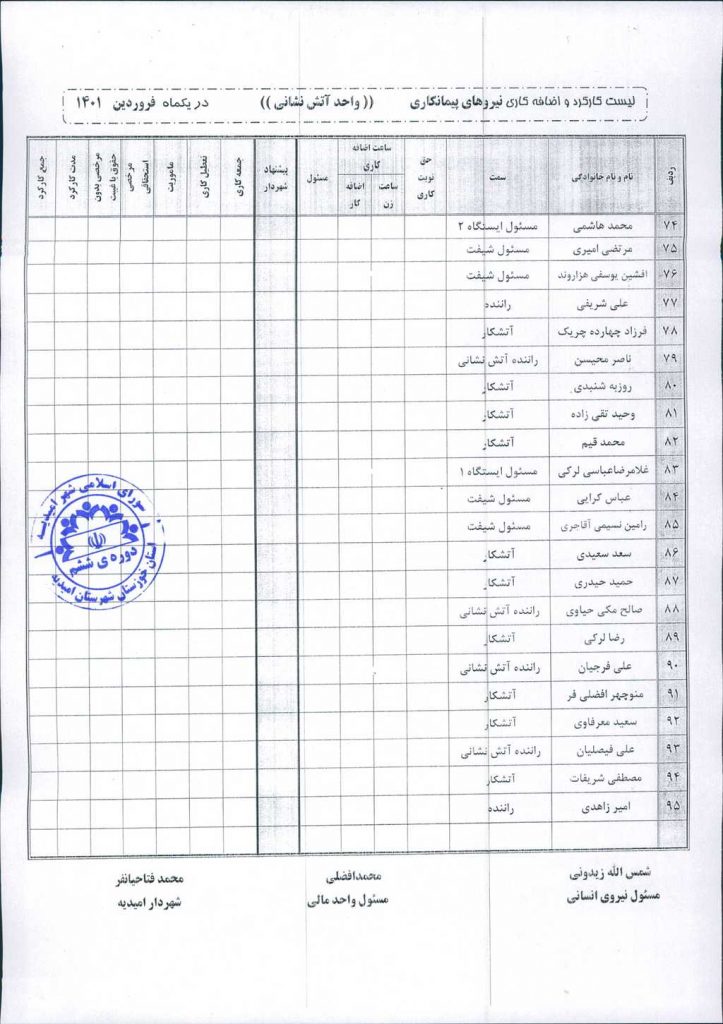 لیست کارکرد و اضافه کاری نیروهای پیمانکاری (( واحد آتش نشانی )) در یکماه فروردین ۱۴۰۱
ردیف نام و نام خانوادگی سمت حق نوبت کاری ساعت اضافه کاری ساعت زن اضافه کار مسئول پیشنهاد شهردار جمعه کاری تعطیل کاری ماموریت مرخصی استحقاقی مرخصی بدون حقوق یا غیبت مدت کارکرد جمع کارکرد
۷۴ محمد هاشمی مسئول ایستگاه ۲
۷۵ مرتضی امیری مسئول شیفت
۷۶ افشین یوسفی هزاروند مسئول شیفت
۷۷ علی شریفی راننده
۷۸ فرزاد چهارده چریک آتشکار
۷۹ ناصر محیسن راننده آتش نشانی
۸۰ روزبه شنبدی آتشکار
۸۱ وحید تقی زاده آتشکار
۸۲ محمد قیم آتشکار
۸۳ غلامرضاعباسی لرکی مسئول ایستگاه ۱
۸۴ عباس کرایی مسئول شیفت
۸۵ رامین نسیمی آقاجری مسئول شیفت
۸۶ سعد سعیدی آتشکار
۸۷ حمید حیدری آتشکار
۸۸ صالح مکی حیاوی راننده آتش نشانی
۸۹ رضا لرکی آتشکار
۹۰ علی فرجیان راننده آتش نشانی
۹۱ منوچهر افضلی فر آتشکار
۹۲ سعید معرفاوی آتشکار
۹۳ علی فیصلیان راننده آتش نشانی
۹۴ مصطفی شریفات آتشکار
۹۵ امیر زاهدی راننده
شورای اسلامی شهر امیدیه
دوره ی ششم
استان خوزستان شهرستان امیدیه
شمس الله زیدونی محمدافضلی محمد فتاحیانفر
مسئول نیروی انسانی مسئول واحد مالی شهردار امیدیه